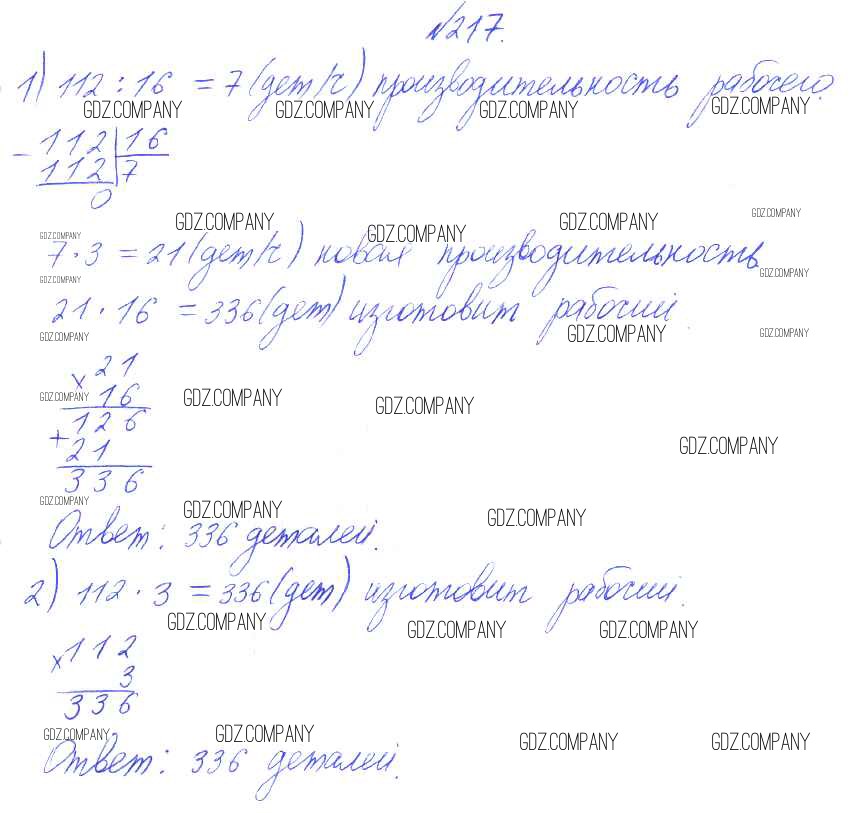 №217.
1) 112 : 16 = 7 (дет/ч) производительность рабочего.
GDZ.COMPANY GDZ.COMPANY GDZ.COMPANY GDZ.COMPANY
- 112 | 16
112 | 7
0
GDZ.COMPANY GDZ.COMPANY GDZ.COMPANY GDZ.COMPANY GDZ.COMPANY
7 · 3 = 21 (дет/ч) новая производительность
GDZ.COMPANY GDZ.COMPANY
21 · 16 = 336 (дет) изготовит рабочий
GDZ.COMPANY GDZ.COMPANY GDZ.COMPANY
× 21
16
GDZ.COMPANY GDZ.COMPANY GDZ.COMPANY
126
+ 21
GDZ.COMPANY
336
GDZ.COMPANY GDZ.COMPANY GDZ.COMPANY
Ответ: 336 деталей.
2) 112 · 3 = 336 (дет) изготовит рабочий.
GDZ.COMPANY GDZ.COMPANY GDZ.COMPANY
× 112
3
336
GDZ.COMPANY GDZ.COMPANY GDZ.COMPANY GDZ.COMPANY
Ответ: 336 деталей.